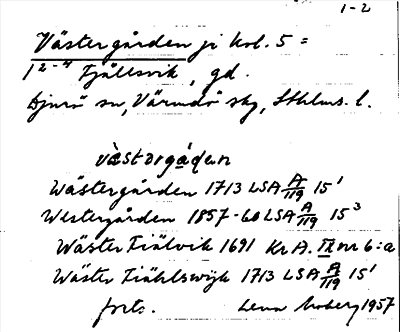 1-2
Västergården ji kol. 5 =
1²⁻⁴ Fjällsvik, gd.
Djurö sn, Värmdö skg, Sthlms. l.
vàstərgá̱ḍən
Wästergården 1713 LSA A/119 15¹
Westergården 1857-60 LSA A/119 15³
Wäster Fiälvik 1691 Kr A. III nr 6:a
Wäster Fiählswijk 1713 LSA A/119 15¹
forts. Lena Moberg 1957